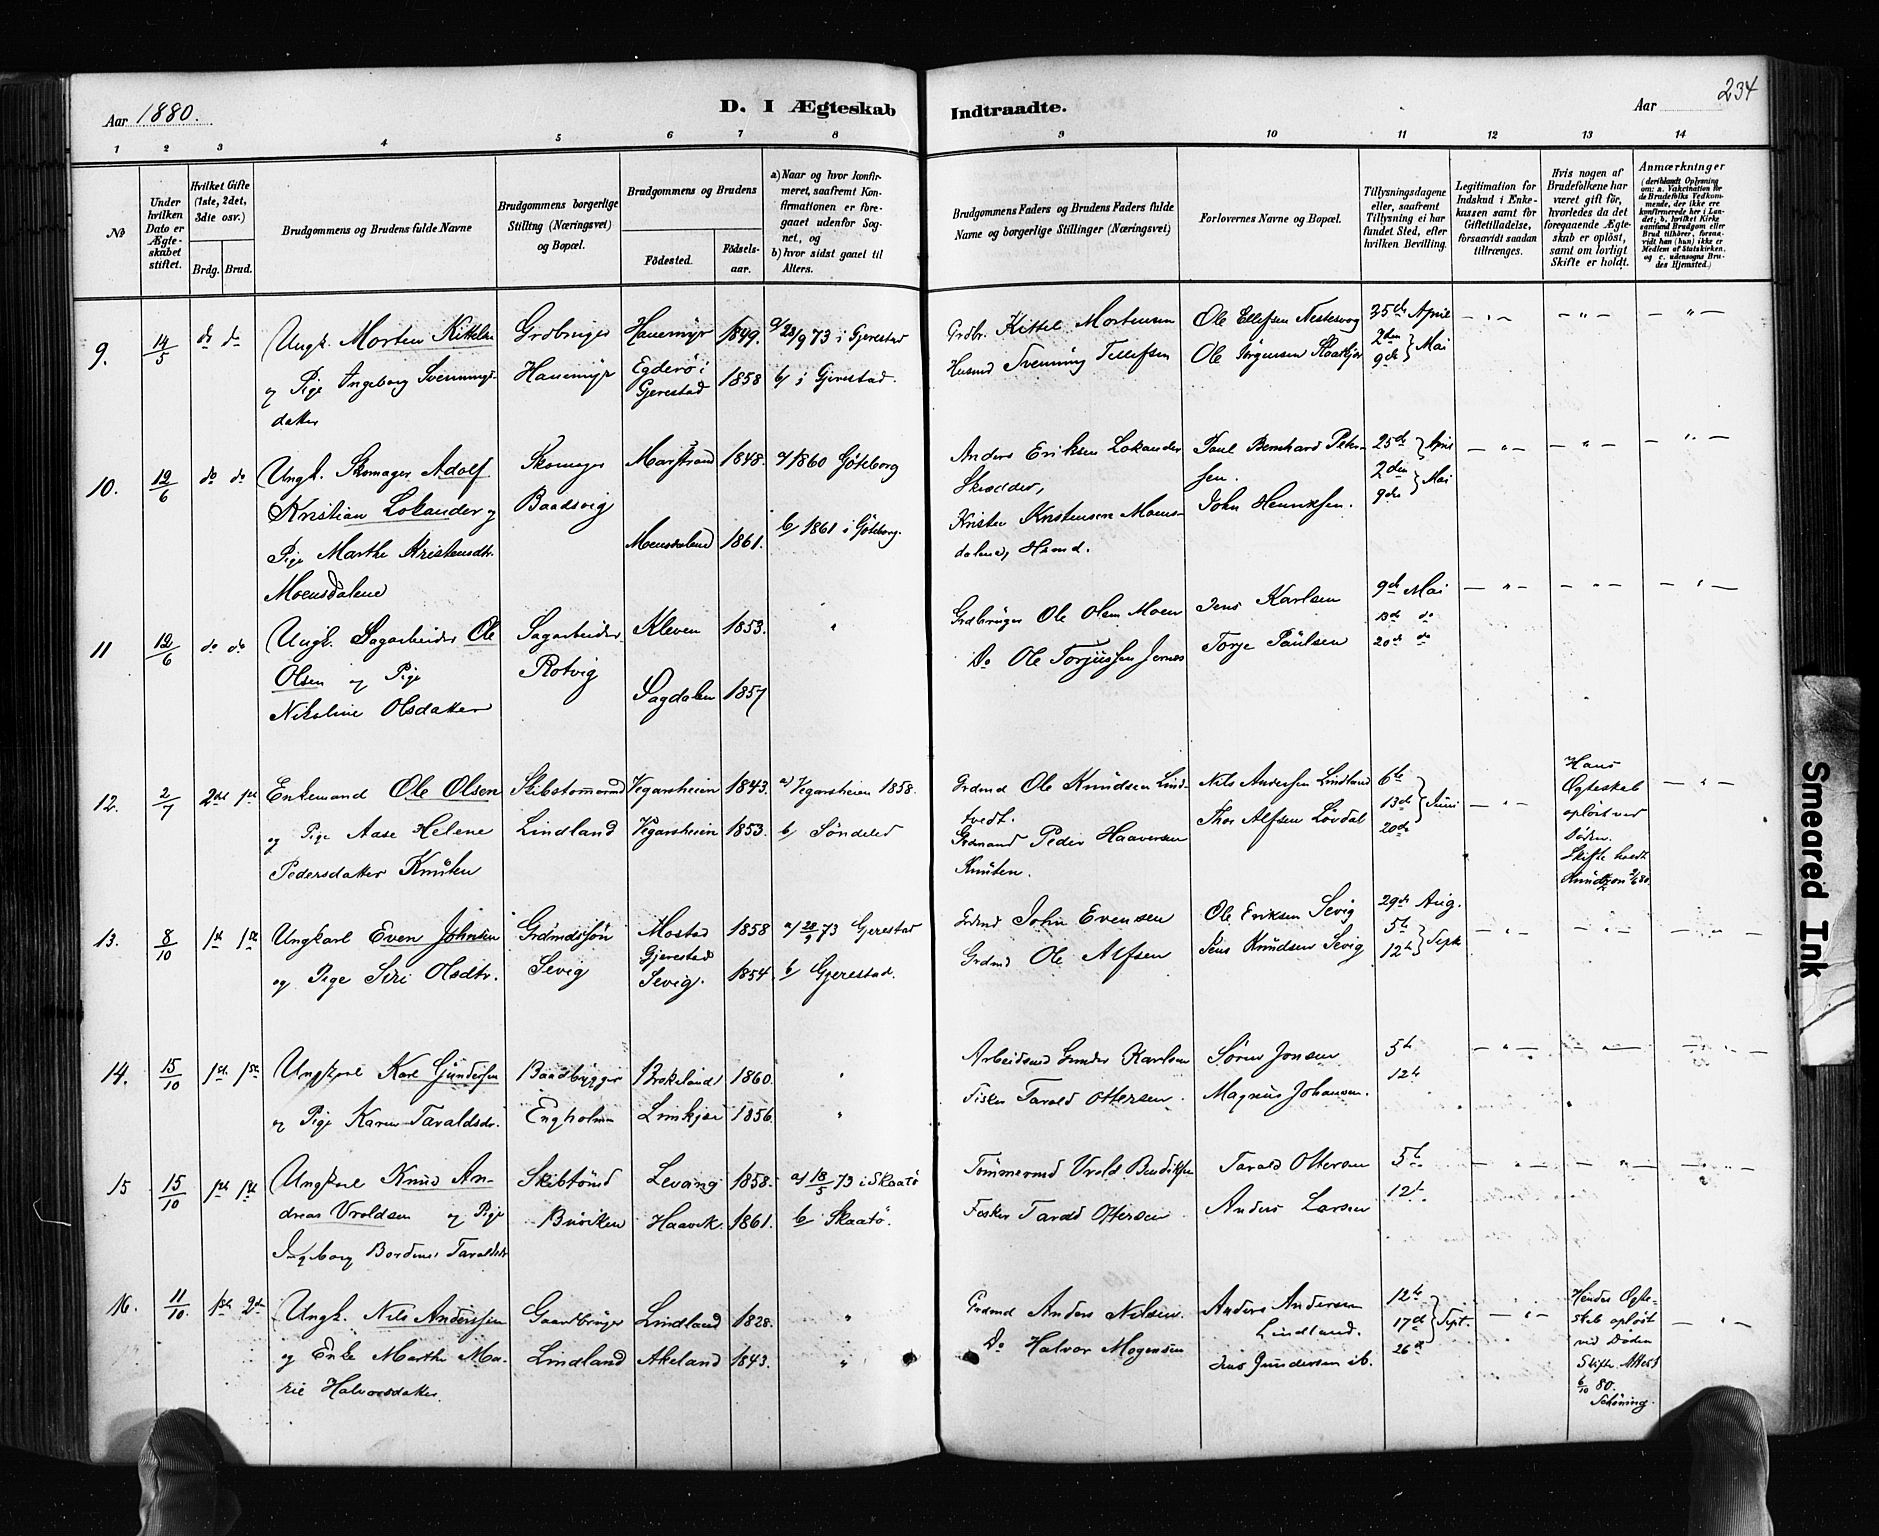 Aar 1880.
D. I Ægteskab Indtraadte.
Aar
234
1 2 3 4 5 6 7 8 9 10 11 12 13 14
No
Under hvilken Dato er Ægteskabet stiftet.
Hvilket Gifte (1ste, 2det, 3die osv.)
Brdg. Brud.
Brudgommens og Brudens fulde Navne
Brudgommens borgerlige Stilling (Næringsvei) og Bopæl.
Brudgommens og Brudens
Födested.
Födselsaar.
a) Naar og hvor konfirmeret, saafremt Konfirmationen er foregaaet udenfor Sognet, og
b) hvor sidst gaaet til Alters.
Brudgommens Faders og Brudens Faders fulde Navne og borgerlige Stillinger (Næringsvei)
Forlovernes Navne og Bopæl.
Tillysningsdagene eller, saafremt Tillysning ei har fundet Sted, efter hvilken Bevilling.
Legitimation for Indskud i Enkekassen samt for Giftetilladelse, forsaavidt saadan tiltrænges.
Hvis nogen af Brudefolkene har været gift för, hvorledes da det foregaaende Ægteskab er oplöst, samt om lovligt Skifte er holdt.
Anmærkninger
9. 14/5 do do Ungk. Morten Kittelsen Grdbruger Hauemyr 1849. a/ 28/9 73 i Gjerestad Grdbr. Kittel Mortensen Ole Ellefsen Nestesvog 25de April
og Pige Ingeborg Svennings- Hauemyr Egderö i Gjerestad 1858 b/ i Gjerestad. Husmd Svenning Tellefsen Ole Jörgensen 2den 9de Mai
datter
10. 12/6 do do Ungk. Skomager Adolf Skomager Marstrand 1848. a/ 1860 Göteborg Anders Eriksen Lokander Paul Bernhard Peter- 25de April
Kristian Lokander og Baadsvig Skrædder, sen. 2den 9de Mai
Pige Marthe Kristensdtr. Moensdalene 1861. b/ 1861 i Göteborg. Kristen Kristensen Moens- John Henriksen.
Moensdalene dalene, Hsmd.
11 12/6 do do Ungk. Sagarbeider Ole Sagarbeider Kleven 1853. " Grdbruger Ole Olsen Moen Jens Karlsen 9de Mai
Olsen og Pige Rotvig Do Ole Torjussen Jernes Torje Paulsen 13de do
Nikoline Olsdatter Sagdalen 1857 20de do
12. 2/7 2det 1ste Enkemand Ole Olsen Skibstömrmd Vegarsheien 1843. a) Vegarsheien 1858. Grdmd Ole Knudsen Lind- Nils Andersen Lindland 6te Hans
og Pige Aase Helene Lindland Vegarsheien 1853. b/ Söndeled tvedt. Thor Alfsen Lövdal 13de Juni Ægteskab
Pedersdatter Knuten Grdmand Peder Haaversen 20de oplöst ved
Knuten. Döden.
Skifte holdt
13. 8/10 1ste 1ste Ungkarl Even Johnsen Grdmdssön Mostad Gjerestad 1858 a/ 28/9 73 Gjerestad Grdmd John Evensen Ole Eriksen Sevig 29de Aug.
og Pige Siri Olsdtr. Sevig Sevig. 1854 b/ Gjerestad. Grdmd Ole Alfsen Jens Knudsen Sevig 5te 12te Septb
14. 15/10 1ste 1ste Ungkarl Karl Gundersen Baadbygger Brokeland 1860. " Arbeidsmd Gunder Karlsen Sören Jonsen 5te
og Pige Karen Taraldsdr. Engholmen Limkjær 1856. " Fisker Tarald Ottersen. Magnus Johansen. 12te
15 15/10 1ste 1ste Ungkarl Knud An- Skibstömd Levang 1858. a/ 18/5 73 i Skaatö Tömmermd Vrold Bendiksen Tarald Ottersen 5te
dreas Vroldsen og Pige Haavik 1861. b/ Skaatö. Fisker Tarald Ottersen Anders Larsen 12te
Ingeborg Taraldsdtr
16. 11/10 1ste 2den Ungk. Nils Anderssen Gaardbruger Lindland 1828. " Grdmd Anders Nilsen. Anders Andersen 12te Hendes Ægte-
og Enke Marthe Ma- Lindland Akeland 1843. " Do Halvor Mogensen Lindland. 17de Sept. skab oplöst
rie Halvorsdatter Jens Gundersen ib. 26de ved Döden
Skifte. Attest
6/10 80.
Schöning.
Smeared Ink